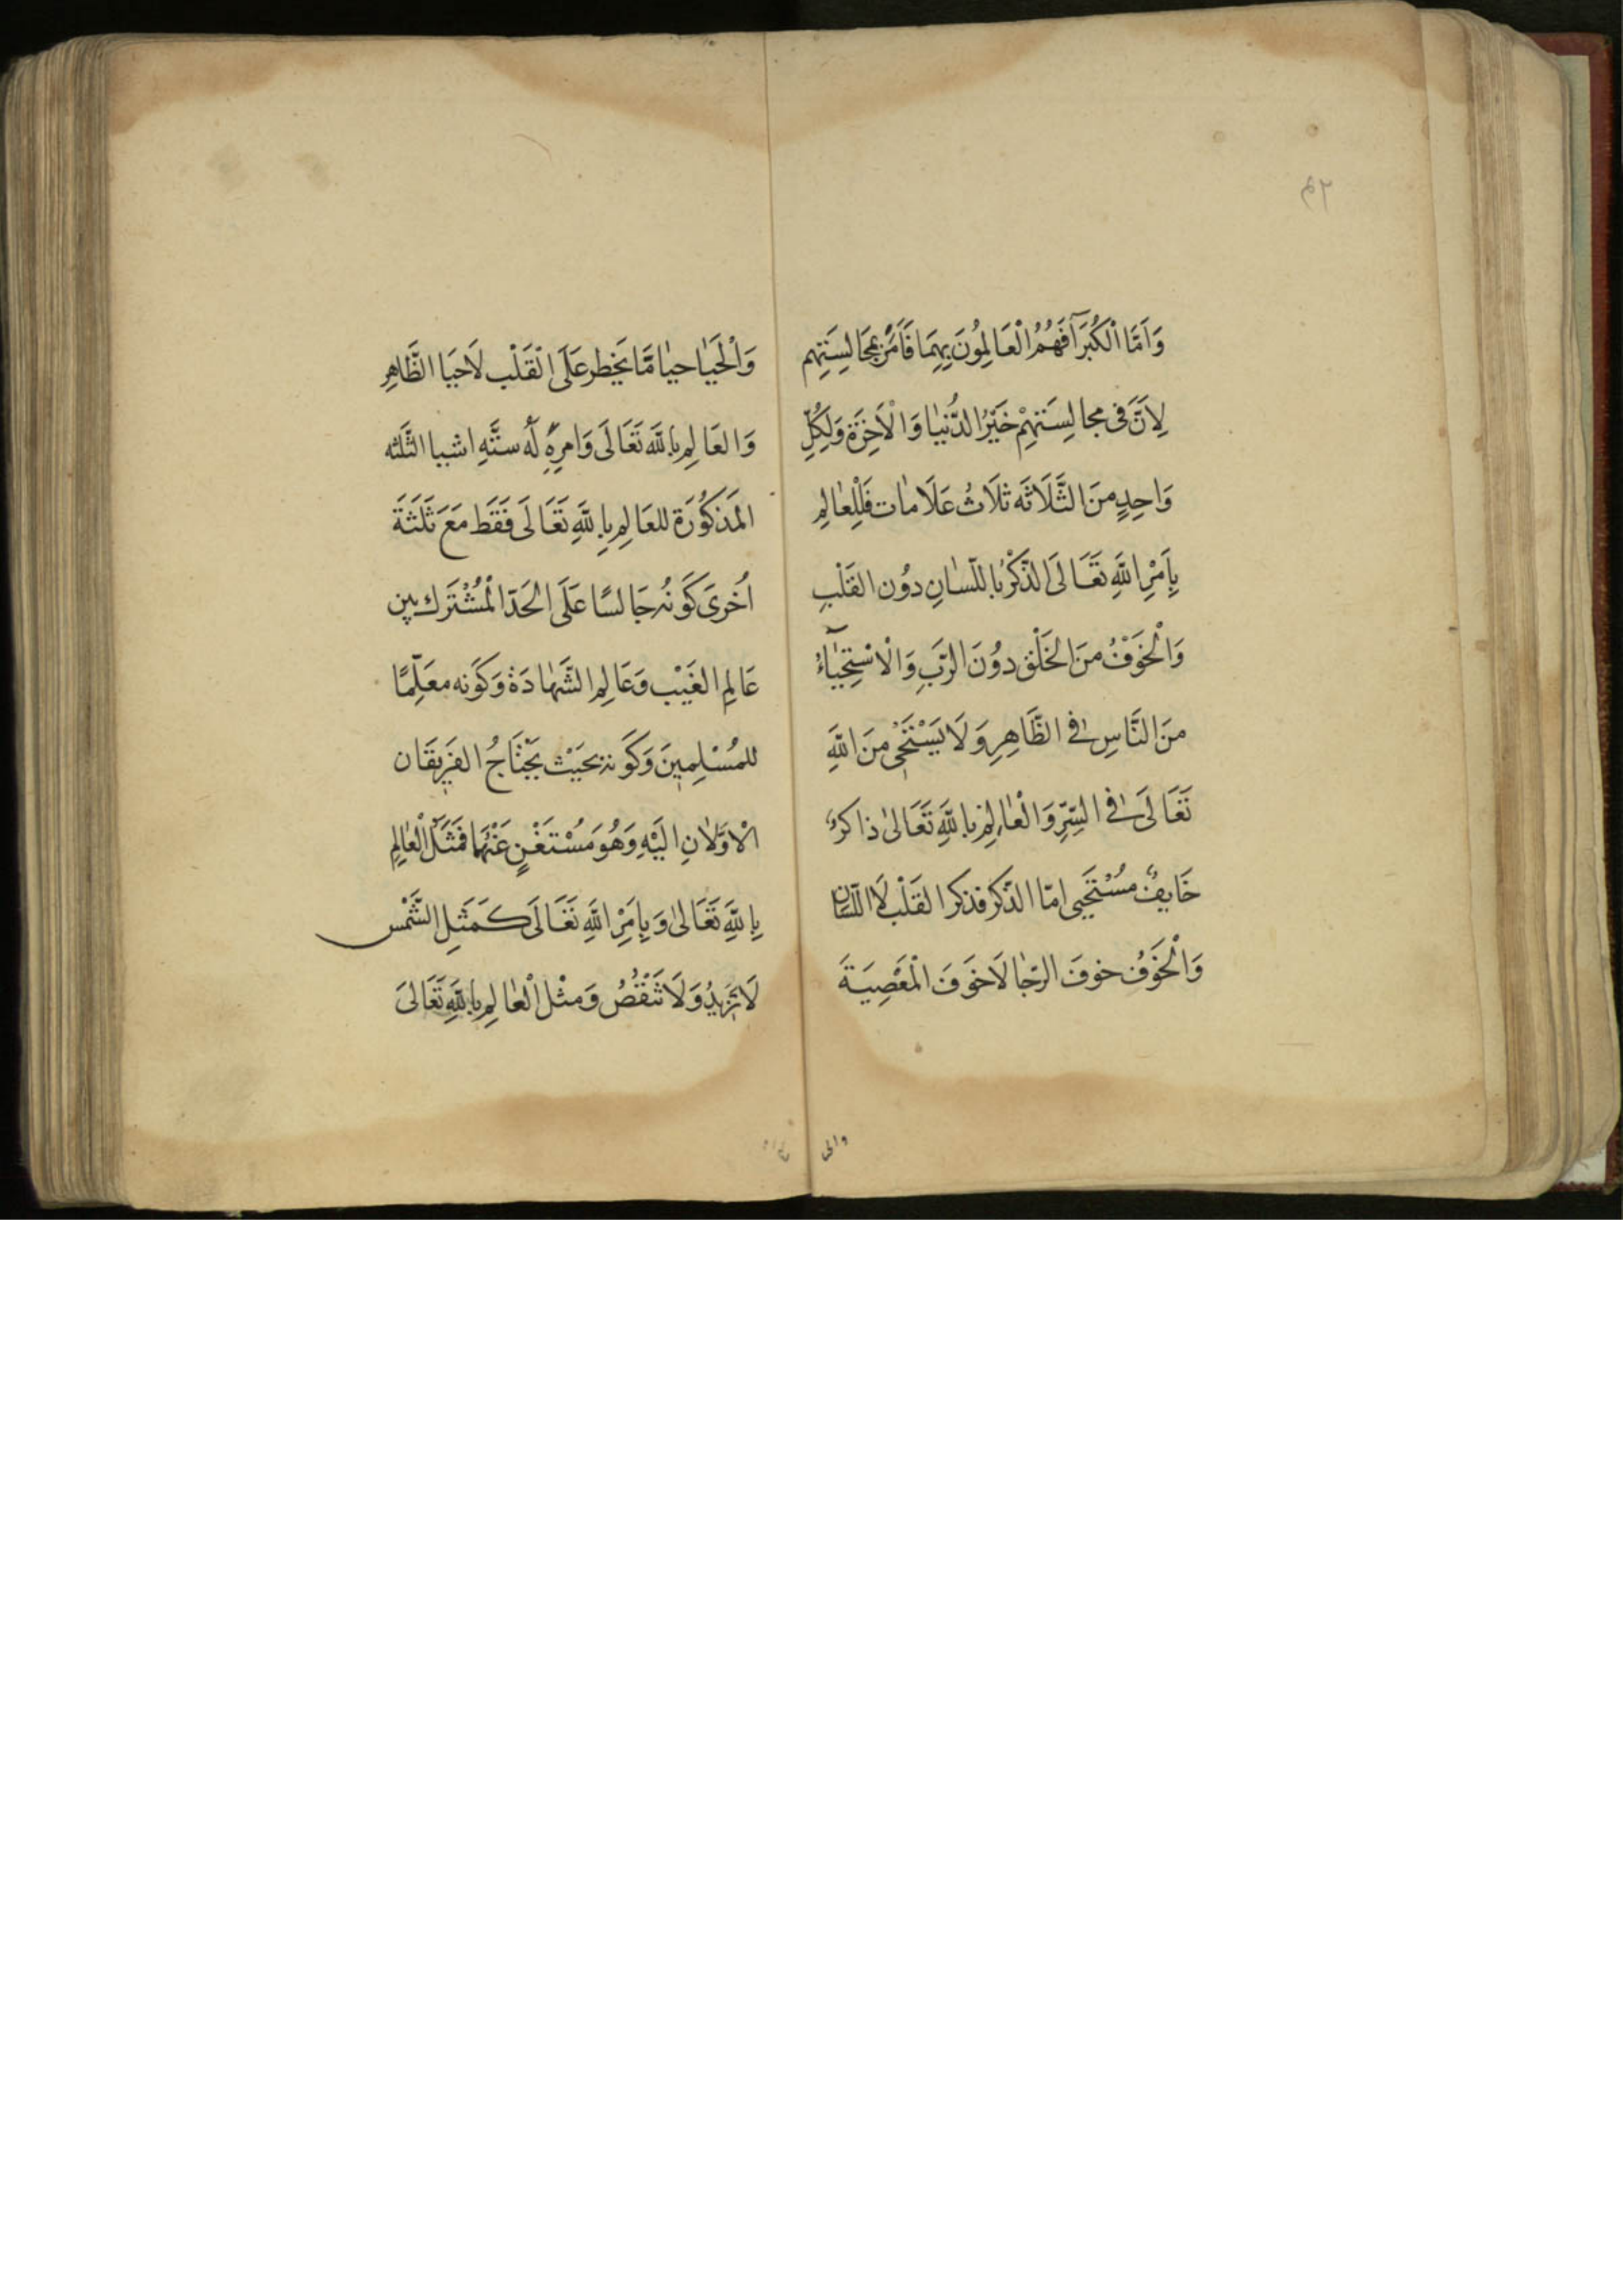 ٤٢
وَاَمَّا الْكُبَرَآ فَهُمُ الْعَالِمُونَ بِهِمَا فَاَمَرَ بِمُجَالِسَتِهِم
لِاَنَّ فى مجالِسَتهِمْ خَيْرُ الدُّنْيٰا وَالْاَخِرَة وَلِكُلِّ
وَاحِدٍ منَ الثَّلَاثَه ثلَاثُ عَلَامٰات فَلِلْعٰالِمِ
بِاَمْرِ اللّٰهِ تَعَالَى الذّكْرُ باللّسٰانِ دوُن القَلْبِ
وَالْخَوَفْ منَ الخَلْق دوُنَ الرَّبِّ وَالْاسْتِحْيٰٓاءُ
منَ النَّاسِ فِى الظَّاهِرِ وَلَا يَسْتَحْيِى منَ اللّٰهِ
تَعَالَى فِى السِّرِّ وَالْعٰالِمُ باللّٰهِ تَعَالىٰ ذاكرٌ
خَايِفٌ مسُتَحيى امّا الذّكر فذكر القَلْب لَا اللّسَان
وَالْخوَفُ خوفَ الرّجٰا لَا خوَفَ الْمَعْصِيَةَ
والحيا
وَالْحَيٰا حيٰا مّٰا يَخطر عَلَى الْقَلْب لَا حيَا الظَّاهِرِ
وَالعَالِم باللّٰه تَعَالَى وَامرِهِ لَه ستَّهِ اشيا الثَّلثه
المَذكوُرَة للعَالِم بِاللّٰهِ تَعَالَى فَقَط مَعَ ثَلثَةَ
اُخرىَ كَوَنُه جَالسًا عَلَى الحَدّ الْمُشْتَرَك بين
عَالِمِ الغَيْب وَعَالِمِ الشَّهٰادَة وَكوَنه معَلِّمًا
للمُسْلِمينَ وَكوَنه بحَيْث يَحْتَاجُ الفَرِيقَان
الْاوَّلٰانِ اليَهِ وَهُوَ مسُتَغْنٍ عَنْهُمَا فَمَثَلُ الْعٰالِمِ
بِاللّٰهِ تَعَالىٰ وَبِامَرِ اللّٰهِ تَعَالَى كَمَثَلِ الشَّمْس
لَا تَزيدُ وَلَا تَنْقُصُ وَمثْل الْعٰالِم باللّٰهِ تَعَالىَ